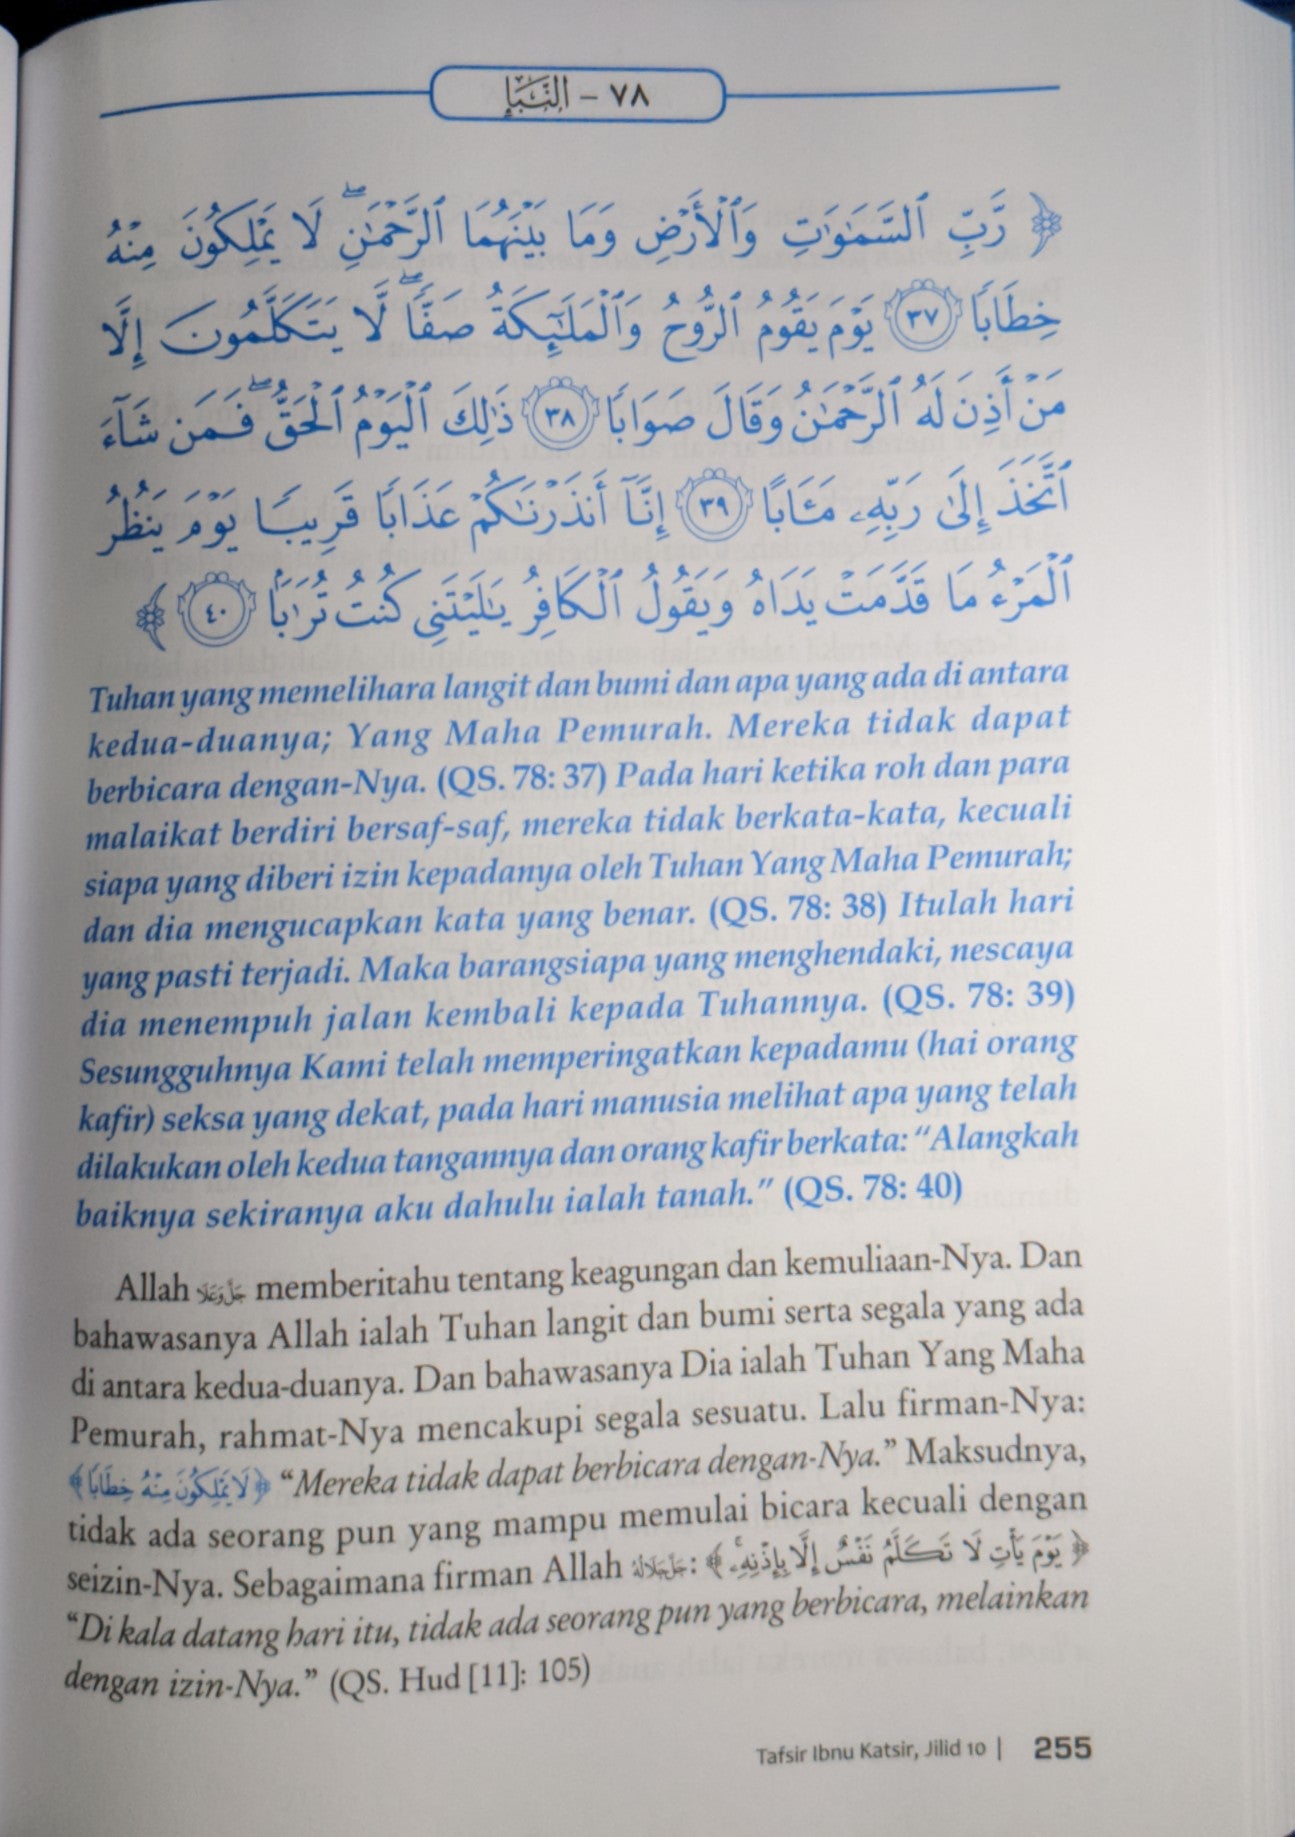 ٧٨ - النَّبَإِ
﴿ رَّبِّ ٱلسَّمَٰوَٰتِ وَٱلْأَرْضِ وَمَا بَيْنَهُمَا ٱلرَّحْمَٰنِ ۖ لَا يَمْلِكُونَ مِنْهُ
خِطَابًا ٣٧ يَوْمَ يَقُومُ ٱلرُّوحُ وَٱلْمَلَٰٓئِكَةُ صَفًّا ۖ لَّا يَتَكَلَّمُونَ إِلَّا
مَنْ أَذِنَ لَهُ ٱلرَّحْمَٰنُ وَقَالَ صَوَابًا ٣٨ ذَٰلِكَ ٱلْيَوْمُ ٱلْحَقُّ ۖ فَمَن شَآءَ
ٱتَّخَذَ إِلَىٰ رَبِّهِۦ مَـَٔابًا ٣٩ إِنَّآ أَنذَرْنَٰكُمْ عَذَابًا قَرِيبًا يَوْمَ يَنظُرُ
ٱلْمَرْءُ مَا قَدَّمَتْ يَدَاهُ وَيَقُولُ ٱلْكَافِرُ يَٰلَيْتَنِى كُنتُ تُرَٰبًۢا ٤٠ ﴾
Tuhan yang memelihara langit dan bumi dan apa yang ada di antara
kedua-duanya; Yang Maha Pemurah. Mereka tidak dapat
berbicara dengan-Nya. (QS. 78: 37) Pada hari ketika roh dan para
malaikat berdiri bersaf-saf, mereka tidak berkata-kata, kecuali
siapa yang diberi izin kepadanya oleh Tuhan Yang Maha Pemurah;
dan dia mengucapkan kata yang benar. (QS. 78: 38) Itulah hari
yang pasti terjadi. Maka barangsiapa yang menghendaki, nescaya
dia menempuh jalan kembali kepada Tuhannya. (QS. 78: 39)
Sesungguhnya Kami telah memperingatkan kepadamu (hai orang
kafir) seksa yang dekat, pada hari manusia melihat apa yang telah
dilakukan oleh kedua tangannya dan orang kafir berkata: “Alangkah
baiknya sekiranya aku dahulu ialah tanah.” (QS. 78: 40)
Allah جَلَّ وَعَلَا memberitahu tentang keagungan dan kemuliaan-Nya. Dan
bahawasanya Allah ialah Tuhan langit dan bumi serta segala yang ada
di antara kedua-duanya. Dan bahawasanya Dia ialah Tuhan Yang Maha
Pemurah, rahmat-Nya mencakupi segala sesuatu. Lalu firman-Nya:
﴿ لَا يَمْلِكُونَ مِنْهُ خِطَابًا ﴾ “Mereka tidak dapat berbicara dengan-Nya.” Maksudnya,
tidak ada seorang pun yang mampu memulai bicara kecuali dengan
seizin-Nya. Sebagaimana firman Allah جَلَّ جَلَالُهُ: ﴿ يَوْمَ يَأْتِ لَا تَكَلَّمُ نَفْسٌ إِلَّا بِإِذْنِهِۦ ۚ ﴾
“Di kala datang hari itu, tidak ada seorang pun yang berbicara, melainkan
dengan izin-Nya.” (QS. Hud [11]: 105)
Tafsir Ibnu Katsir, Jilid 10 | 255